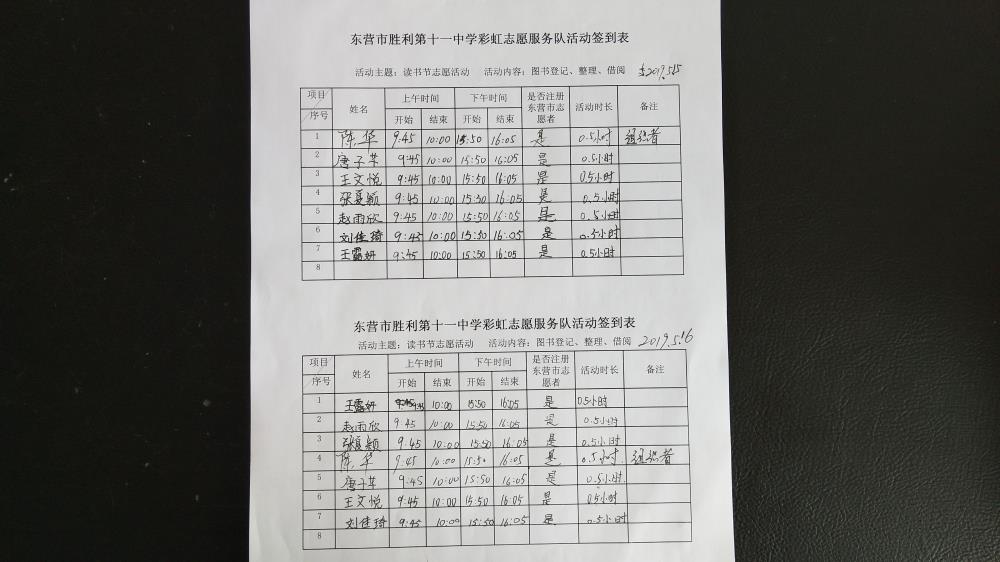 东营市胜利第十一中学彩虹志愿服务队活动签到表
活动主题：读书节志愿活动 活动内容：图书登记、整理、借阅 2019.5.15
项目 序号 姓名 上午时间 下午时间 是否注册东营市志愿者 活动时长 备注
开始 结束 开始 结束
1 陈华 9:45 10:00 15:50 16:05 是 0.5小时 组织者
2 唐子苹 9:45 10:00 15:50 16:05 是 0.5小时
3 王文悦 9:45 10:00 15:50 16:05 是 0.5小时
4 张夏颖 9:45 10:00 15:50 16:05 是 0.5小时
5 赵雨欣 9:45 10:00 15:50 16:05 是 0.5小时
6 刘佳琦 9:45 10:00 15:50 16:05 是 0.5小时
7 王露妍 9:45 10:00 15:50 16:05 是 0.5小时
8
东营市胜利第十一中学彩虹志愿服务队活动签到表
活动主题：读书节志愿活动 活动内容：图书登记、整理、借阅 2019.5.16
项目 序号 姓名 上午时间 下午时间 是否注册东营市志愿者 活动时长 备注
开始 结束 开始 结束
1 王露妍 9:45 10:00 15:50 16:05 是 0.5小时
2 赵雨欣 9:45 10:00 15:50 16:05 是 0.5小时
3 张夏颖 9:45 10:00 15:50 16:05 是 0.5小时
4 陈华 9:45 10:00 15:50 16:05 是 0.5小时 组织者
5 唐子苹 9:45 10:00 15:50 16:05 是 0.5小时
6 王文悦 9:45 10:00 15:50 16:05 是 0.5小时
7 刘佳琦 9:45 10:00 15:50 16:05 是 0.5小时
8